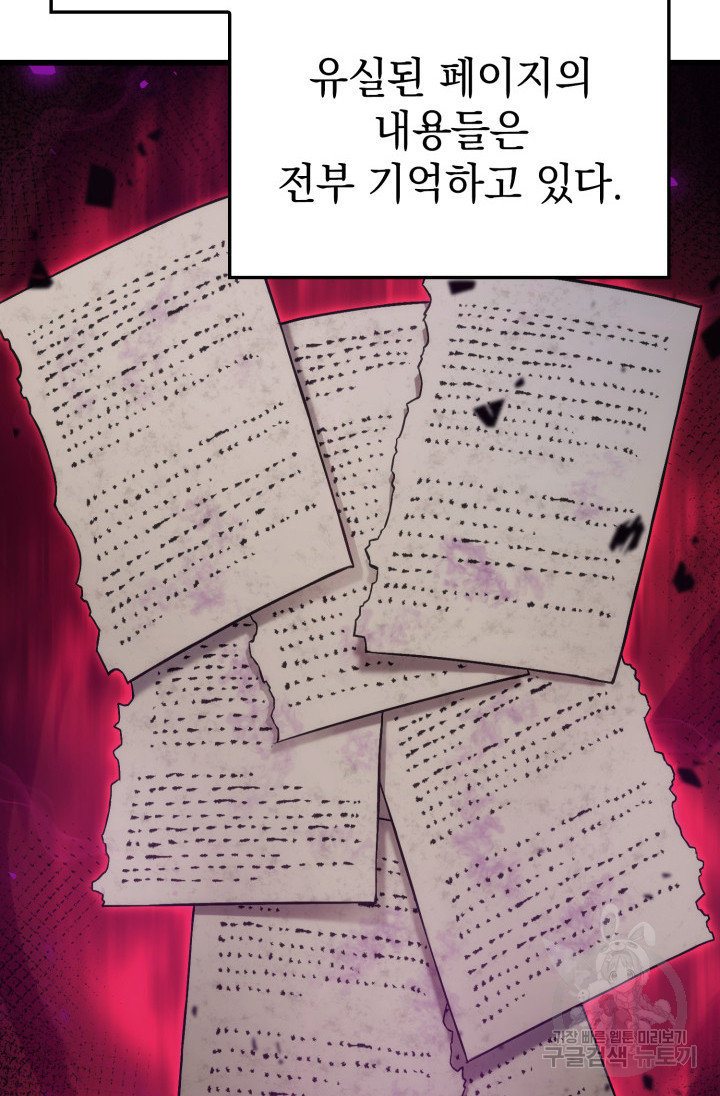 유실된 페이지의
내용들은
전부 기억하고 있다.
가장 빠른 웹툰 미리보기
구글검색 뉴토끼